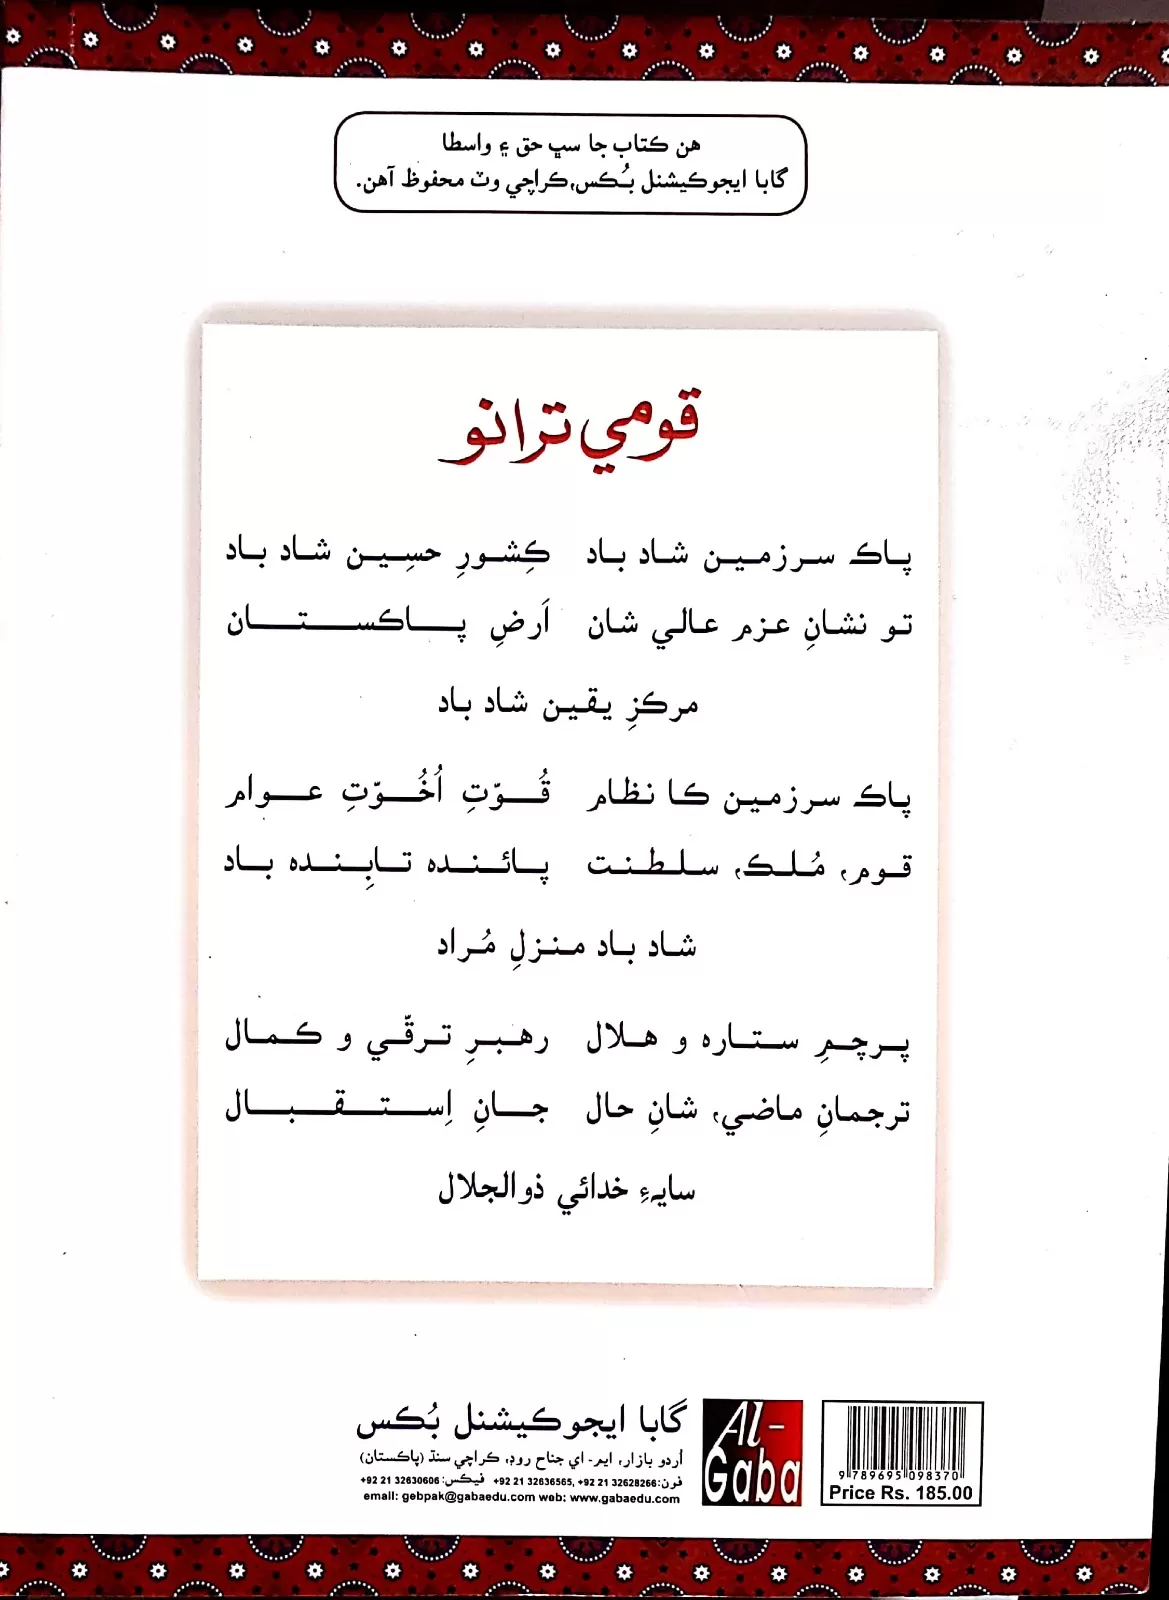 هن ڪتاب جا سڀ حق ۽ واسطا
گابا ايجوڪيشنل بُڪس، ڪراچي وٽ محفوظ آهن.
قومي ترانو
پاڪ سرزمين شاد باد ڪِشورِ حسِين شاد باد
تو نشانِ عزم عالي شان اَرضِ پاڪستان
مرڪزِ يقين شاد باد
پاڪ سرزمين ڪا نظام قُوّتِ اُخُوّتِ عوام
قوم، مُلڪ، سلطنت پائنده تابِنده باد
شاد باد منزلِ مُراد
پرچمِ ستاره و هلال رهبرِ ترقّي و ڪمال
ترجمانِ ماضي، شانِ حال جانِ اِستقبال
سايهءِ خدائي ذوالجلال
گابا ايجوڪيشنل بُڪس
اُردو بازار، ايم- اي جناح روڊ، ڪراچي سنڌ (پاڪستان)
فون: +92 21 32636565, +92 21 32628266 فيڪس: +92 21 32630606
email: gebpak@gabaedu.com web: www.gabaedu.com
Al-Gaba
9 789695 098370
Price Rs. 185.00